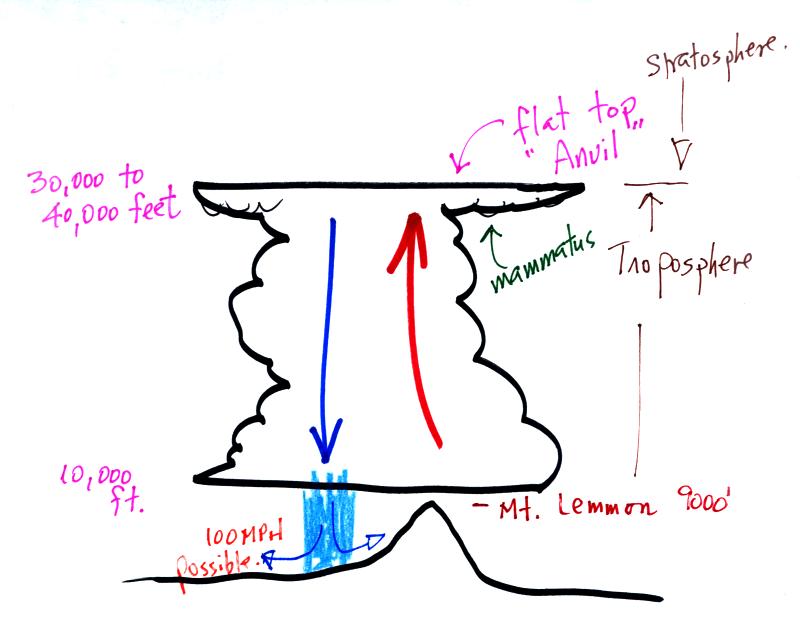 Stratosphere.
flat top,,
" Anvil
30,000 to
40,000 feet
mammatus
Troposphere
10,000
ft.
- Mt. Lemmon 9000'
100MPH
possible.